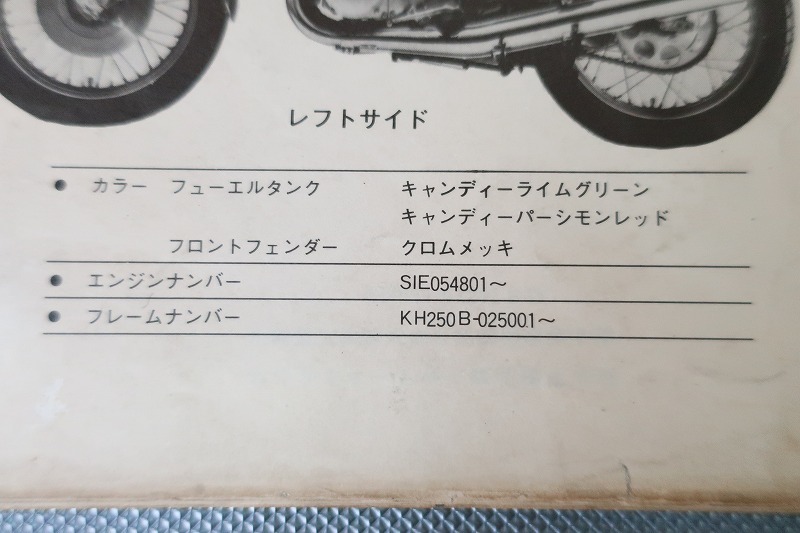 レフトサイド
● カラー フューエルタンク キャンディーライムグリーン
キャンディーパーシモンレッド
フロントフェンダー クロムメッキ
● エンジンナンバー SIE054801～
● フレームナンバー KH250B-025001～